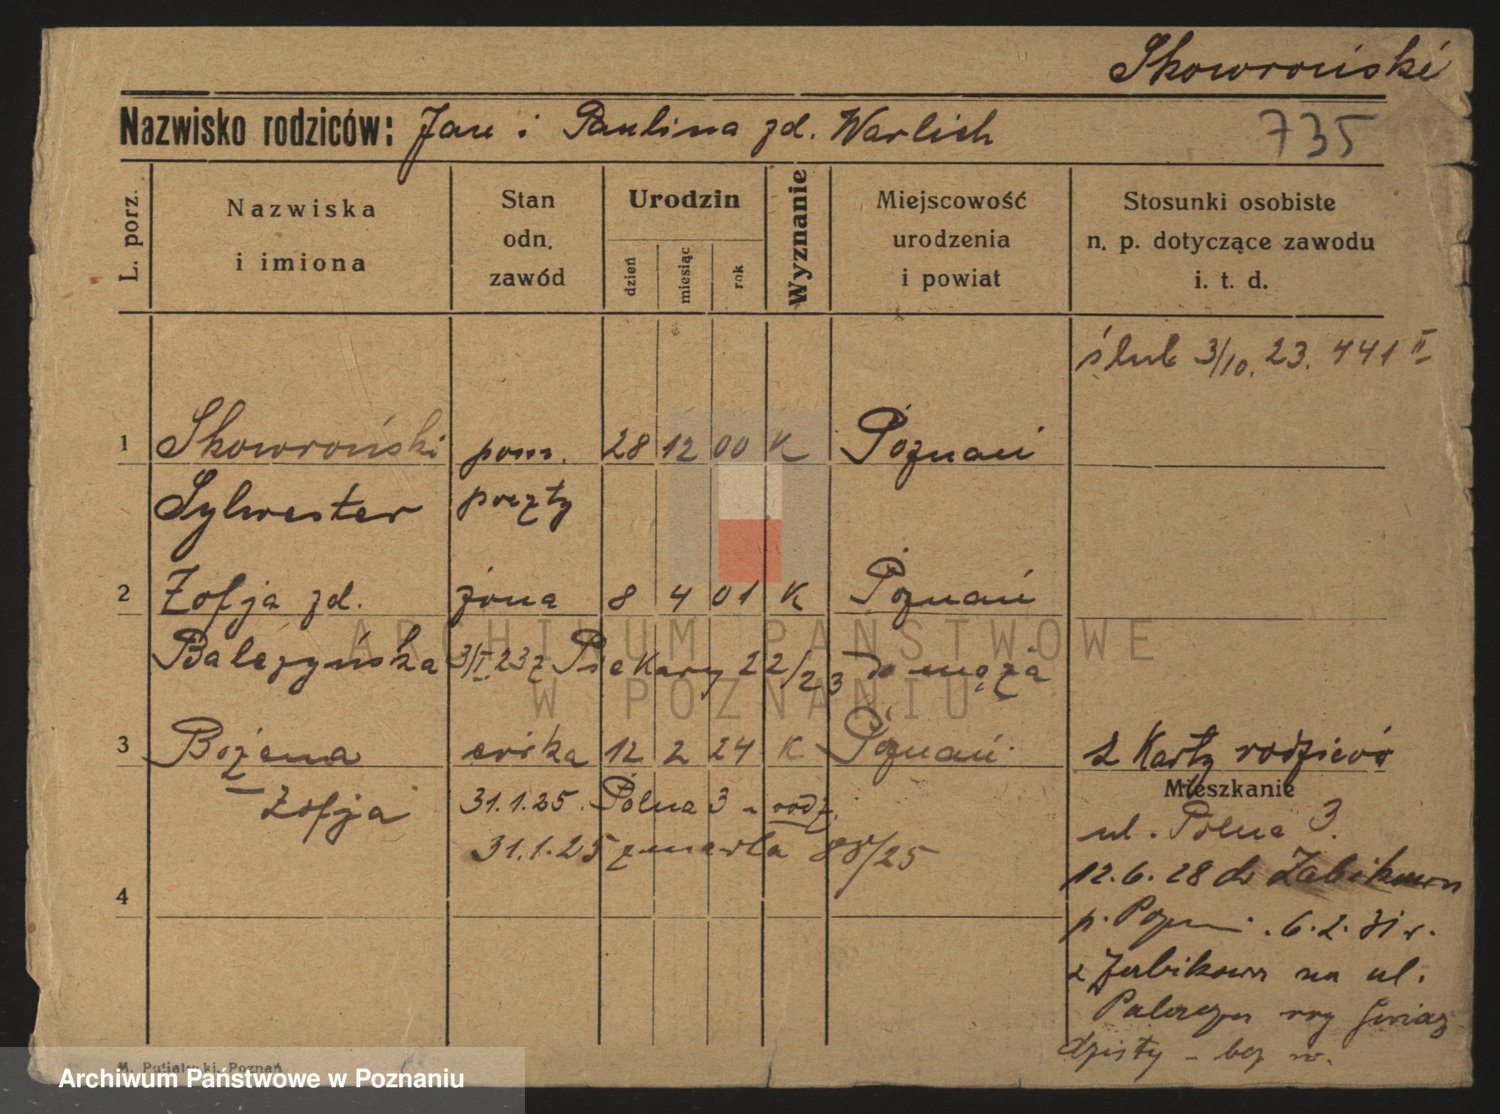 Skowroński
Nazwisko rodziców: Jan i Paulina zd. Warlich 735
L. porz.
Nazwiska i imiona
Stan odn. zawód
Urodzin
dzień miesiąc rok
Wyznanie
Miejscowość urodzenia i powiat
Stosunki osobiste n. p. dotyczące zawodu i. t. d.
ślub 3/10. 23. 441 II
1 Skowroński pom. 28 12 00 K Poznań
Sylwester poczty
2 Zofja zd. żona 8 4 01 K Poznań
Balczyńska 3/I.23 z Piekary 22/23 do męża
3 Bożena córka 12 2 24 K Poznań z Karty rodziców
Mieszkanie
Zofja 31.1.25. Polna 3 - rodz.
ul. Polna 3.
31.1.25 zmarła 88/25
12.6.28 do Żabikowa
4
p. Pozn. 6.2.31 r.
z Żabikowa na ul.
Palacza róg Gwiaź
dzisty - bez n.
M. Putiatycki, Poznań
ARCHIWUM PAŃSTWOWE
W POZNANIU
Archiwum Państwowe w Poznaniu